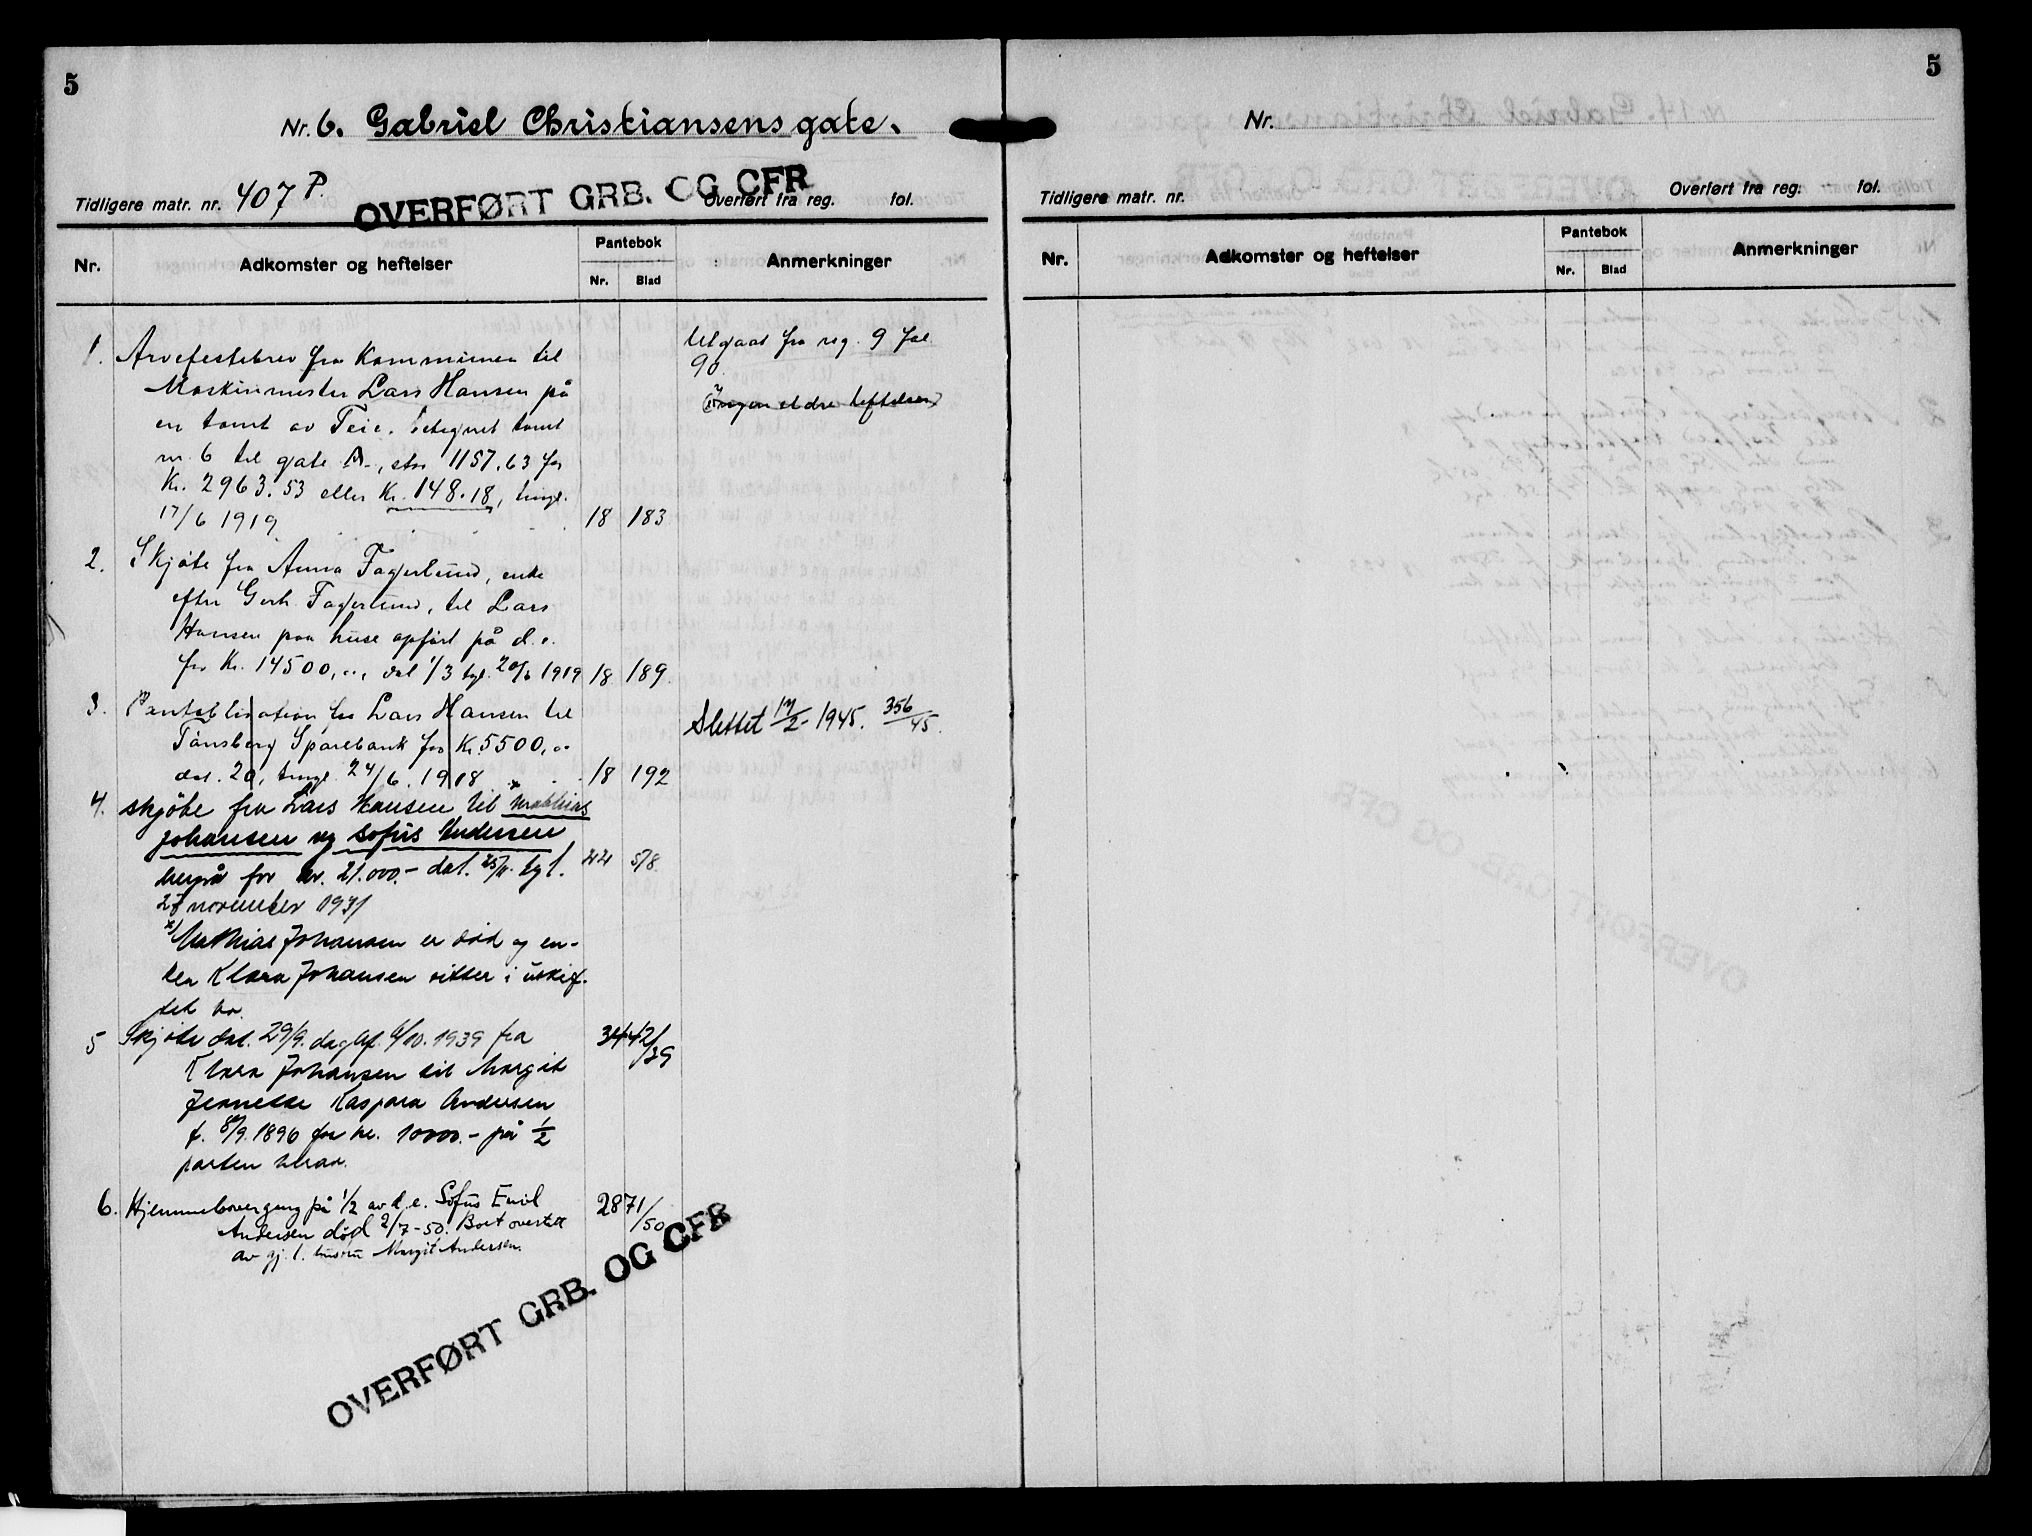 5
Nr. 6. Gabriel Christiansens gate.
Tidligere matr. nr. 407 P.
OVERFØRT GRB. OG CFR
Overført fra reg. fol.
Nr. Adkomster og heftelser Pantebok Nr. Blad Anmerkninger
1. Arvefestebrev fra Kommunen til
Maskinmester Lars Hansen på
en tomt av Teie, betegnet tomt
nr. 6 til gate A., stor 1157.63 for
Kr. 2963.53 eller Kr. 148.18, tingl.
17/6 1919 18 183
Utgaat fra reg. 9 fol
90.
(Ingen eldre heftelser)
2. Skjøte fra Anna Fagerlund, enke
efter Gerh. Fagerlund, til Lars
Hansen paa huse opført på d. e.
for Kr. 14500,00, dat 1/3 tgl. 20/6 1919 18 189.
3. Pantobligation fra Lars Hansen til
Tønsberg Sparebank for Kr. 5500,00
dat. 20, tingl. 24/6. 1918 18 192
Slettet 17/2 - 1945. 356/45.
4. skjøte fra Lars Hansen til x Mathias
Johansen og Sofus Andersen
herpå for kr. 21.000.- dat. 25/11. tgl. 22 578.
27 november 1931
x) Mathias Johansen er død og en-
ken Klara Johansen sitter i uskif-
tet bo.
5 Skjøte dat. 29/9. dagbf. 6/10. 1939 fra 3442/39
Klara Johansen til Margit
Jennette Kaspara Andersen
f. 8/9. 1896 for kr. 10000.- på 1/2
parten herav.
6. Hjemmelsovergang på 1/2 av d. e. Sofus Emil 2871/50
Andersen død 2/7-50. Boet overtatt
av gj. l. hustru Margit Andersen.
OVERFØRT GRB. OG CFR
5
Nr.
Tidligere matr. nr. Overført fra reg. fol.
Nr. Adkomster og heftelser Pantebok Nr. Blad Anmerkninger